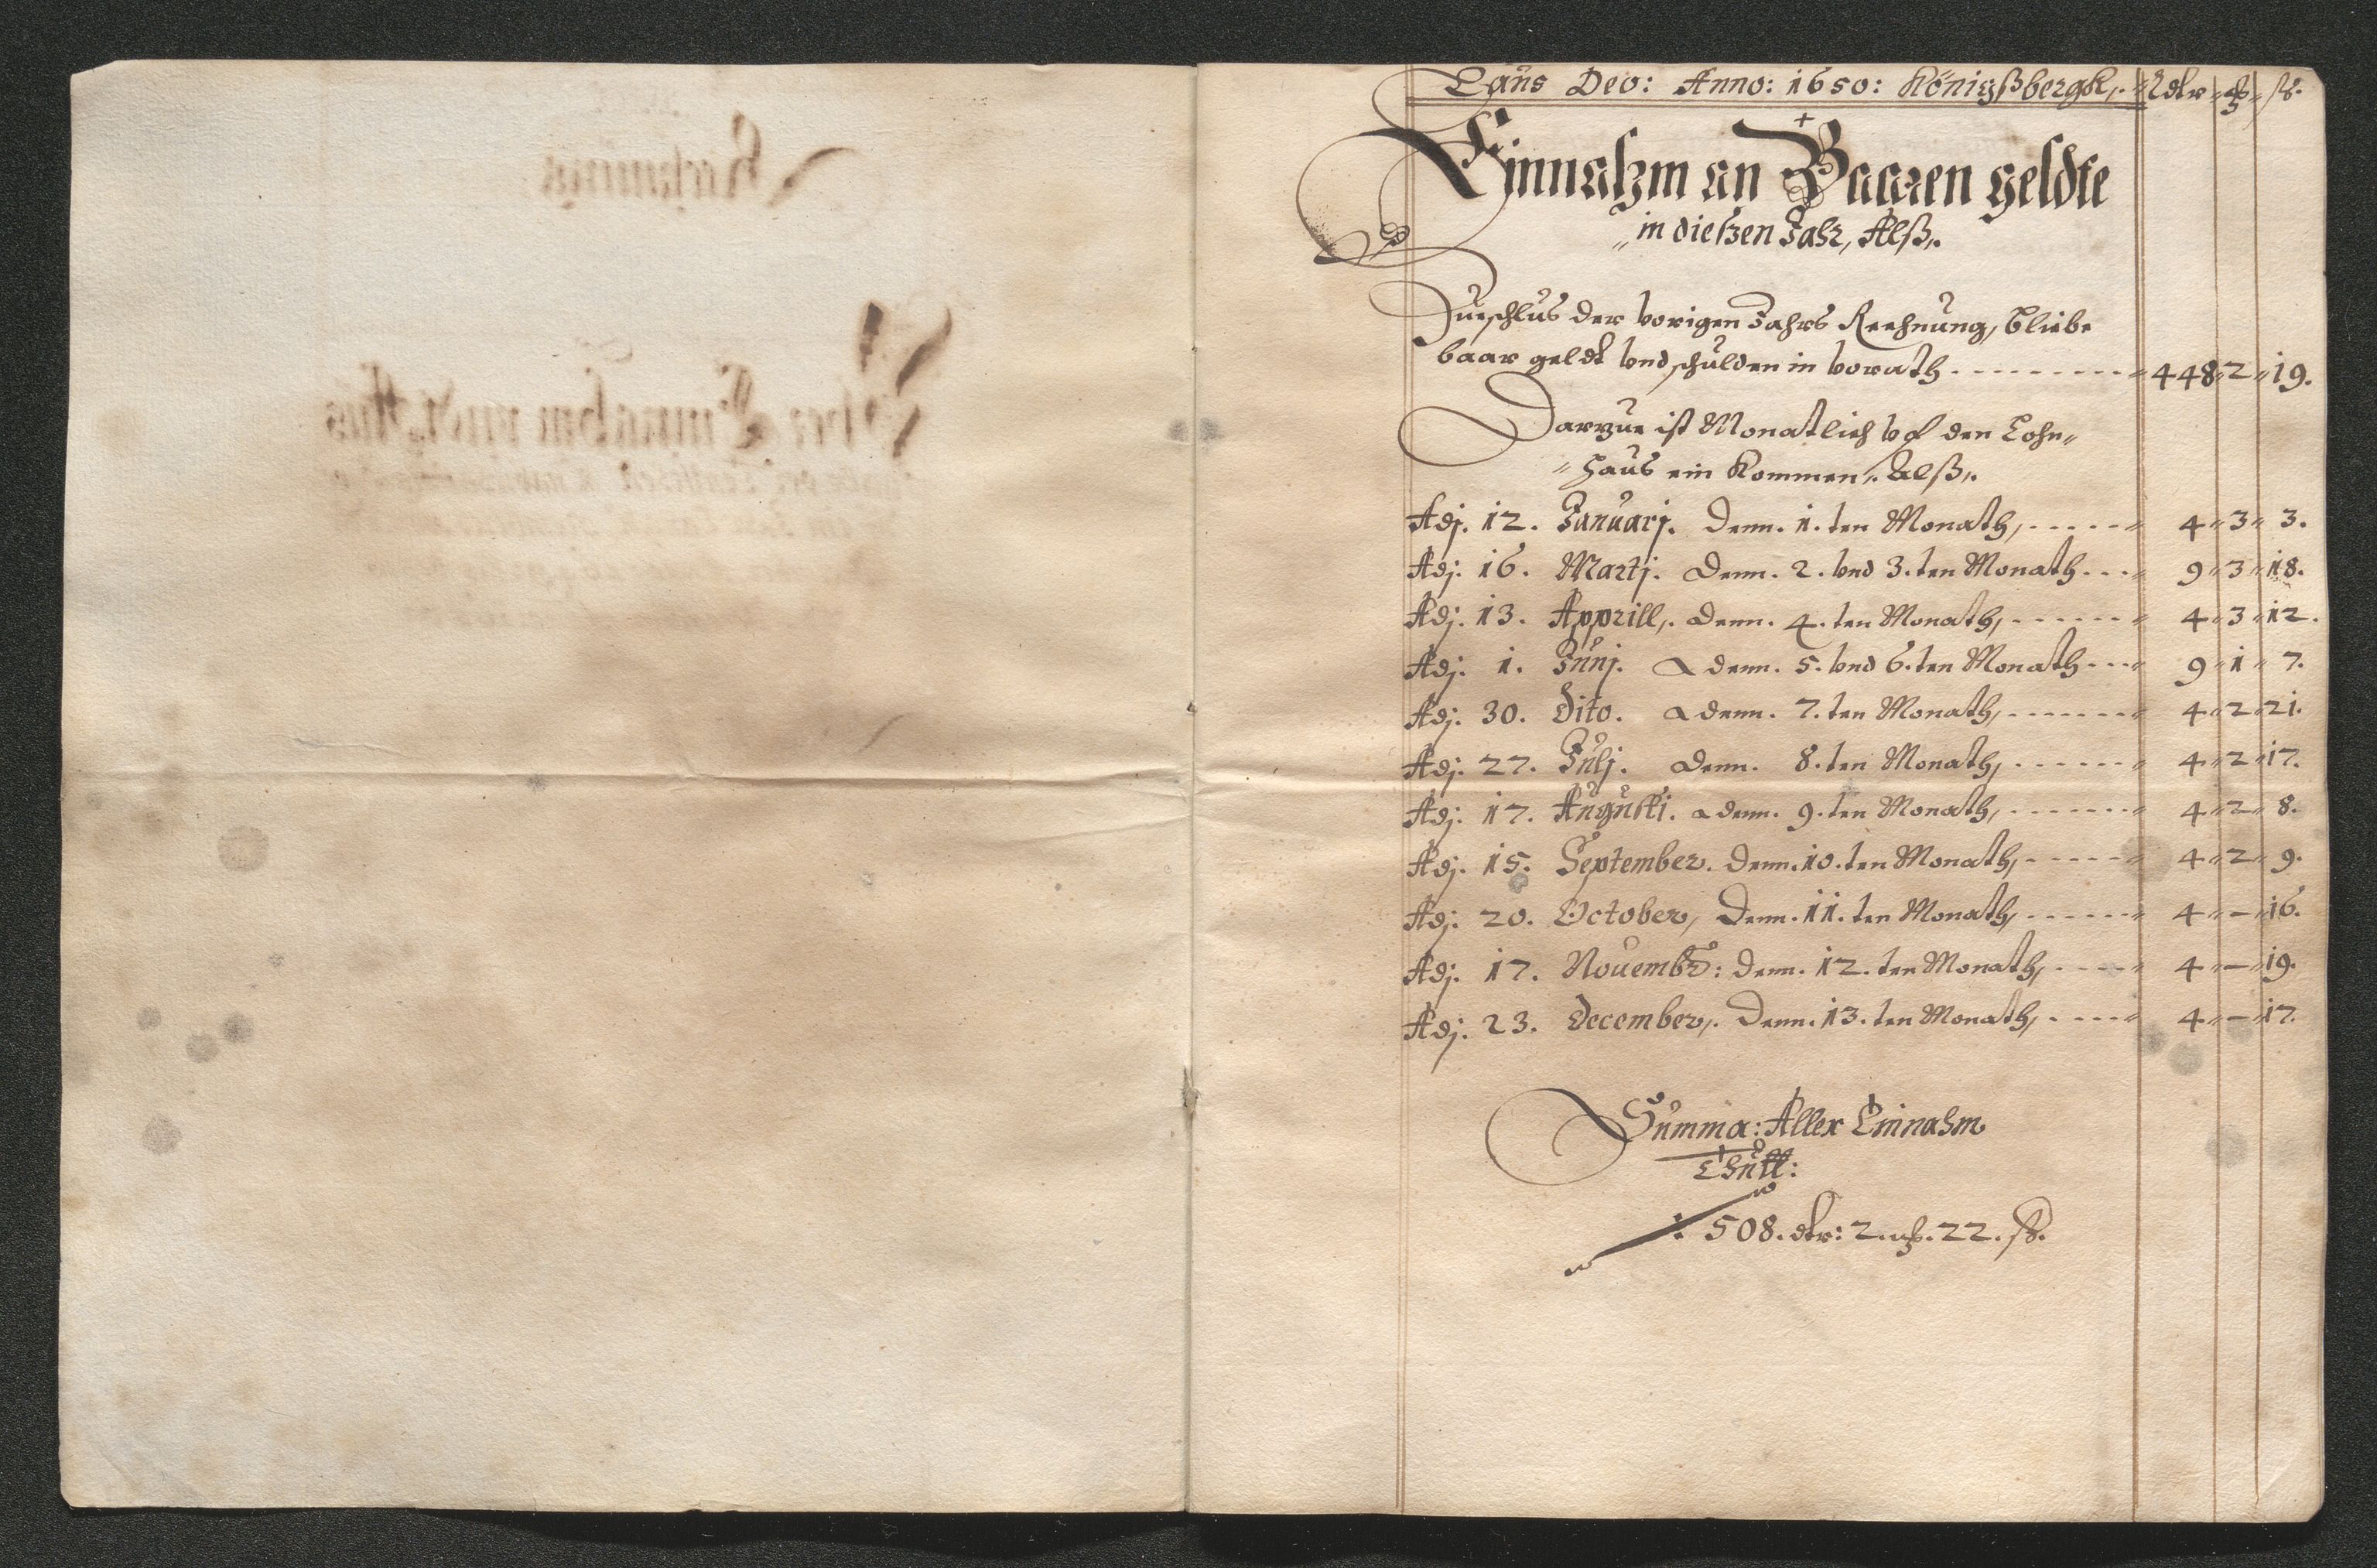 Laus Deo: Anno: 1650: Königßbergk,. Rdlr
Einnahm an Baaren geldte
in dießen Jahr, Alß,.
Zueschlus der vorigen Jahrs Rechnung, bliebe
baar geldt vnd schulden in vorath - - - - - - - - - " 448 " 2 " 19.
Darzue ist Monatlich vf den Zehn"
"haus ein Kommen,. Alß,.
Adj. 12. Januarj. Denn. 1. ten Monath, - - - - - " 4 " 3 " 3.
Adj. 16. Martj. Denn. 2. vnd 3. ten Monath - - - " 9 " 3 " 18.
Adj. 13. Apprill,. Denn. 4. ten Monath, - - - - - - " 4 " 3 " 12.
Adj. 1. Junj. Denn. 5. vnd 6. ten Monath - - - " 9 " 1 " 7.
Adj. 30. Dito. Denn. 7. ten Monath, - - - - - - - " 4 " 2 " 21.
Adj. 27. Julj. Denn. 8. ten Monath, - - - - - - " 4 " 2 " 17.
Adj. 17. Augusti. Denn. 9. ten Monath, - - - - - - - " 4 " 2 " 8.
Adj. 15. September. Denn. 10. ten Monath, - - - - - " 4 " 2 " 9.
Adj. 20. October, Denn. 11. ten Monath, - - - - - - " 4 " — " 16.
Adj. 17. Nouembr: Denn. 12. ten Monath, - - - - - " 4 " — " 19.
Adj. 23. December,. Denn. 13. ten Monath, - - - - " 4 " — " 17.
Summa: Aller Einnahm
Thutt:
: 508. dlr: 2. mk. 22. ß.